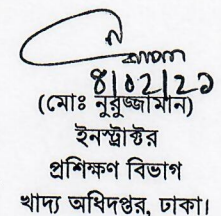 ৪/০২/২১
(মোঃ নুরুজ্জামান)
ইনস্ট্রাক্টর
প্রশিক্ষণ বিভাগ
খাদ্য অধিদপ্তর, ঢাকা।